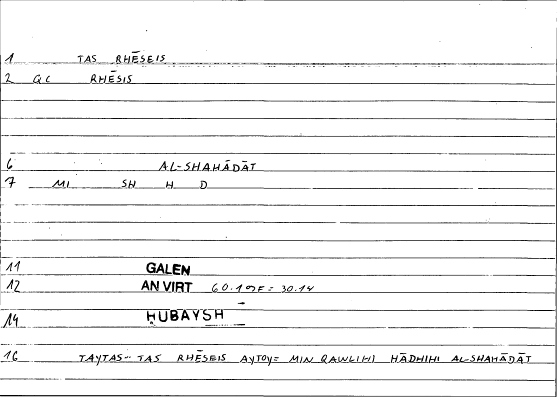 1 TAS RHĒSEIS
2 QC RHĒSIS
6 AL-SHAHĀDĀT
7 MI SH H D
11 GALEN
12 AN VIRT = 30.14
14 ḤUBAYSH
16 TAYTAS-- TAS RHĒSEIS AYTOY= MIN QAWLIHI HĀDHIHI AL-SHAHĀDĀT